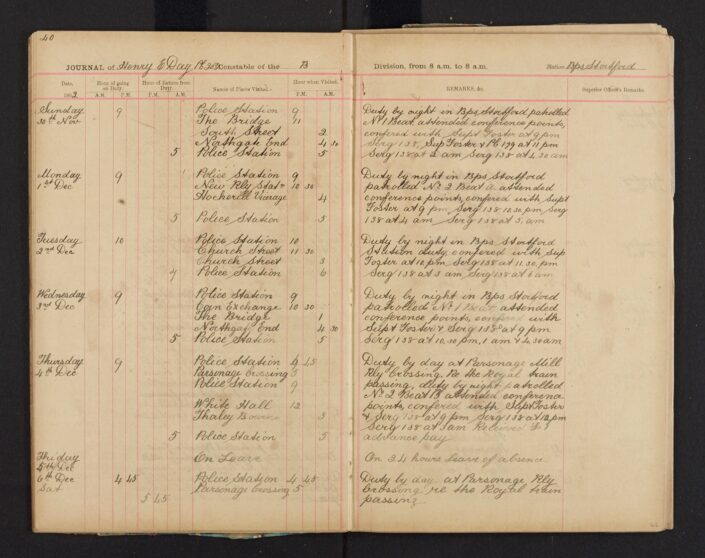 40
JOURNAL of Henry E Day Pc Constable of the B Division, from 8 a.m. to 8 a.m. Station Bps Stortford
Date, Hour of going on Duty. Hour of Return from Duty. Names of Places Visited. Hour when Visited. REMARKS, &c. Superior Officer's Remarks.
A.M. P.M. P.M. A.M. P.M. A.M.
Sunday 9 Police Station 9 Duty by night in Bps Stortford patrolled
30th Nov The Bridge 11 No 1 Beat, attended conference points,
South Street 2 confered with Supt Foster at 9 pm
Northgate End 4 30 Serg 138, Sup Foster & Pc 199 at 11 pm
5 Police Station 5 Serg 138 at 2 am Serg 138 at 4.30 am
Monday 9 Police Station 9 Duty by night in Bps Stortford
1st Dec New Rly Statn 10 30 patrolled No 2 Beat attended
Hockerill Vicarage 4 conference points, confered with Supt
Foster at 9 pm, Serg 138 10.30 pm, Serg
5 Police Station 5 138 at 4 am Serg 138 at 5. am
Tuesday 10 Police Station 10 Duty by night in Bps Stortford
2nd Dec Church Street 11 30 Station duty, confered with Sup
Church Street 3 Foster at 10 pm, Serg 138 at 11.30 pm
Police Station 6 Serg 138 at 3 am Serg 138 at 6 am
Wednesday 9 Police Station 9 Duty by night in Bps Stortford
3rd Dec Corn Exchange 10 30 patrolled No 1 Beat attended
The Bridge 1 conference points, confered with
Northgate End 4 30 Supt Foster & Serg 138 at 9 pm
5 Police Station 5 Serg 138 at 10.30 pm, 1 am & 4.30 am
Thursday 9 Police Station 4 45 Duty by day at Parsonage Mill
4th Dec Parsonage Crossing 5 Rly Crossing, Re the Royal train
Police Station 9 passing, duty by night patrolled
No 2 Beat attended conference
White Hall 12 points, confered with Supt Foster
Thorley Bourne 3 & Serg 138 at 9 pm Serg 138 at 12 pm
Serg 138 at 3 am Recieved
5 Police Station 5 advance pay
Friday On Leave On 24 hours Leave of absence
5th Dec
6th Dec 4 45 Police Station 4 45 Duty by day at Parsonage Rly
Sat Parsonage Crossing 5 Crossing, re the Royal train
5 45 passing